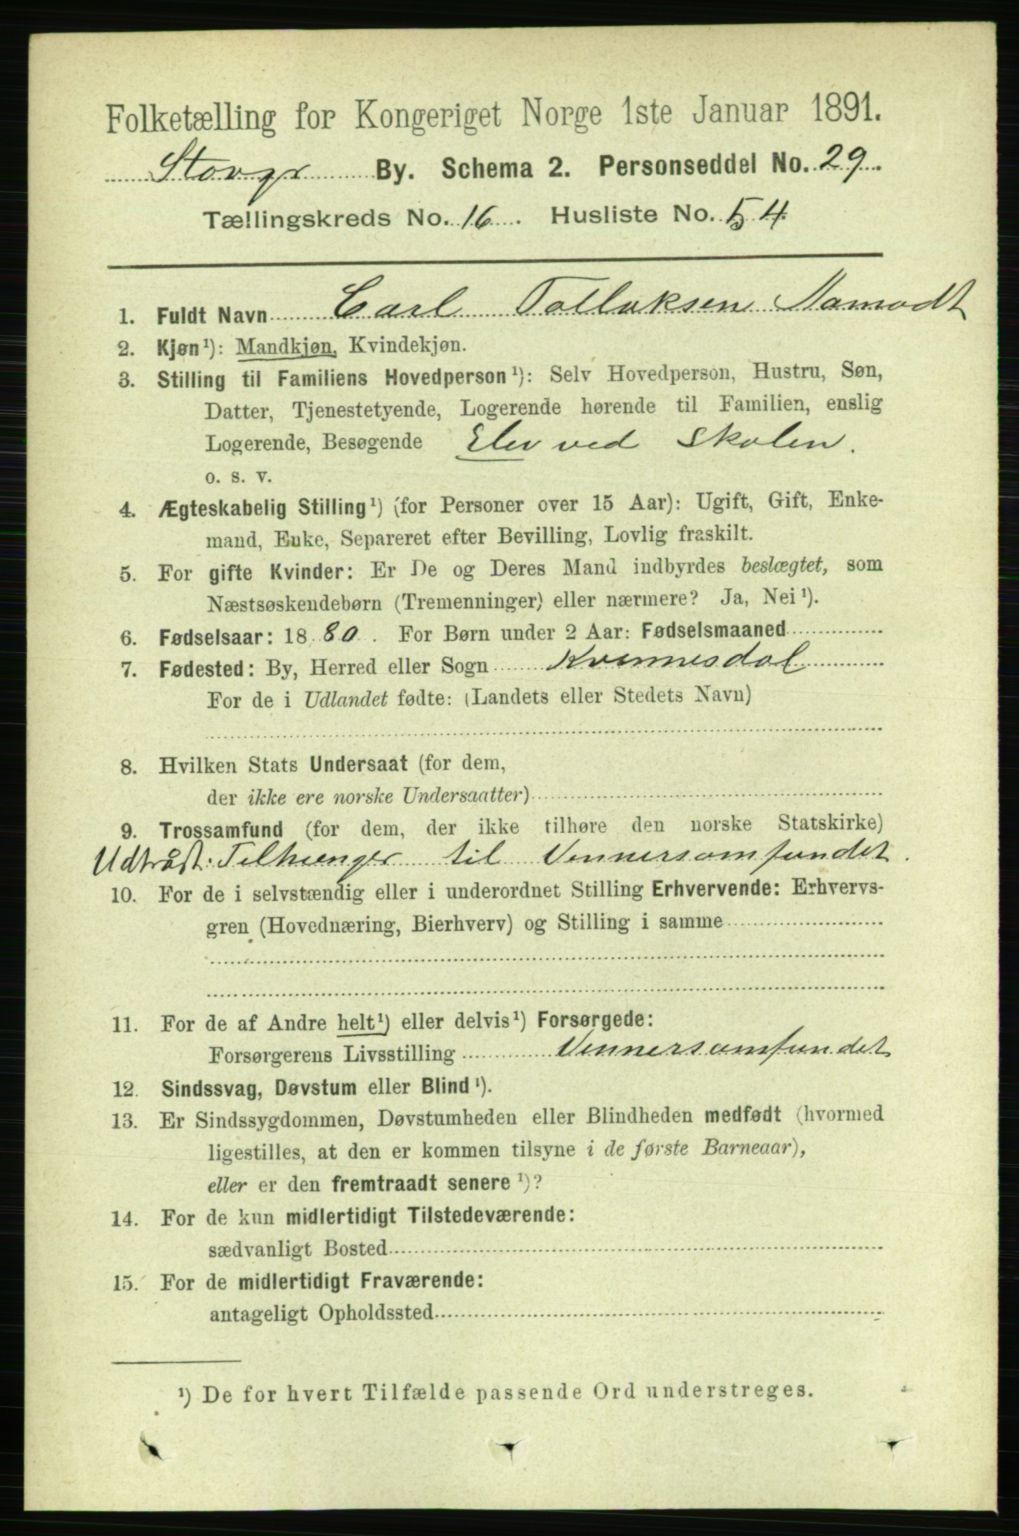 Folketælling for Kongeriget Norge 1ste Januar 1891.
Stavgr By. Schema 2. Personseddel No. 29.
Tællingskreds No. 16. Husliste No. 54
1. Fuldt Navn Carl Tollaksen Mamodt
2. Kjøn ¹): Mandkjøn, Kvindekjøn.
3. Stilling til Familiens Hovedperson ¹): Selv Hovedperson, Hustru, Søn,
Datter, Tjenestetyende, Logerende hørende til Familien, enslig
Logerende, Besøgende Elev ved Skolen.
o. s. v.
4. Ægteskabelig Stilling ¹) (for Personer over 15 Aar): Ugift, Gift, Enke-
mand, Enke, Separeret efter Bevilling, Lovlig fraskilt.
5. For gifte Kvinder: Er De og Deres Mand indbyrdes beslægtet, som
Næstsøskendebørn (Tremenninger) eller nærmere? Ja, Nei ¹).
6. Fødselsaar: 1880. For Børn under 2 Aar: Fødselsmaaned
7. Fødested: By, Herred eller Sogn Kvinnesdal
For de i Udlandet fødte: (Landets eller Stedets Navn)
8. Hvilken Stats Undersaat (for dem,
der ikke ere norske Undersaatter)
9. Trossamfund (for dem, der ikke tilhøre den norske Statskirke)
Udtrådt. Tilhænger til Vennersamfundet.
10. For de i selvstændig eller i underordnet Stilling Erhvervende: Erhvervs-
gren (Hovednæring, Bierhverv) og Stilling i samme
11. For de af Andre helt ¹) eller delvis ¹) Forsørgede:
Forsørgerens Livsstilling Vennersamfundet
12. Sindssvag, Døvstum eller Blind ¹).
13. Er Sindssygdommen, Døvstumheden eller Blindheden medfødt (hvormed
ligestilles, at den er kommen tilsyne i de første Barneaar),
eller er den fremtraadt senere ¹)?
14. For de kun midlertidigt Tilstedeværende:
sædvanligt Bosted
15. For de midlertidigt Fraværende:
antageligt Opholdssted
¹) De for hvert Tilfælde passende Ord understreges.